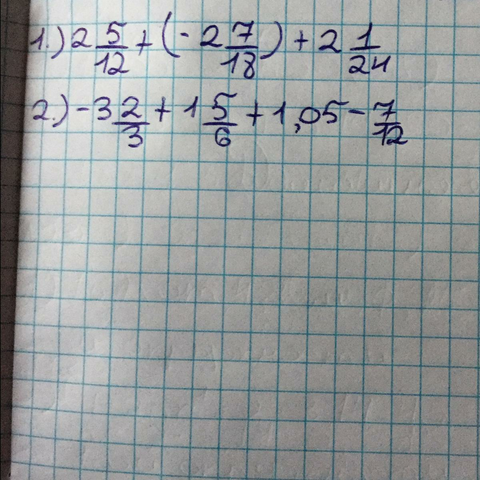 1.) 2 5/12 + (- 2 7/18) + 2 1/24
2.) - 3 2/3 + 1 5/6 + 1,05 - 7/12